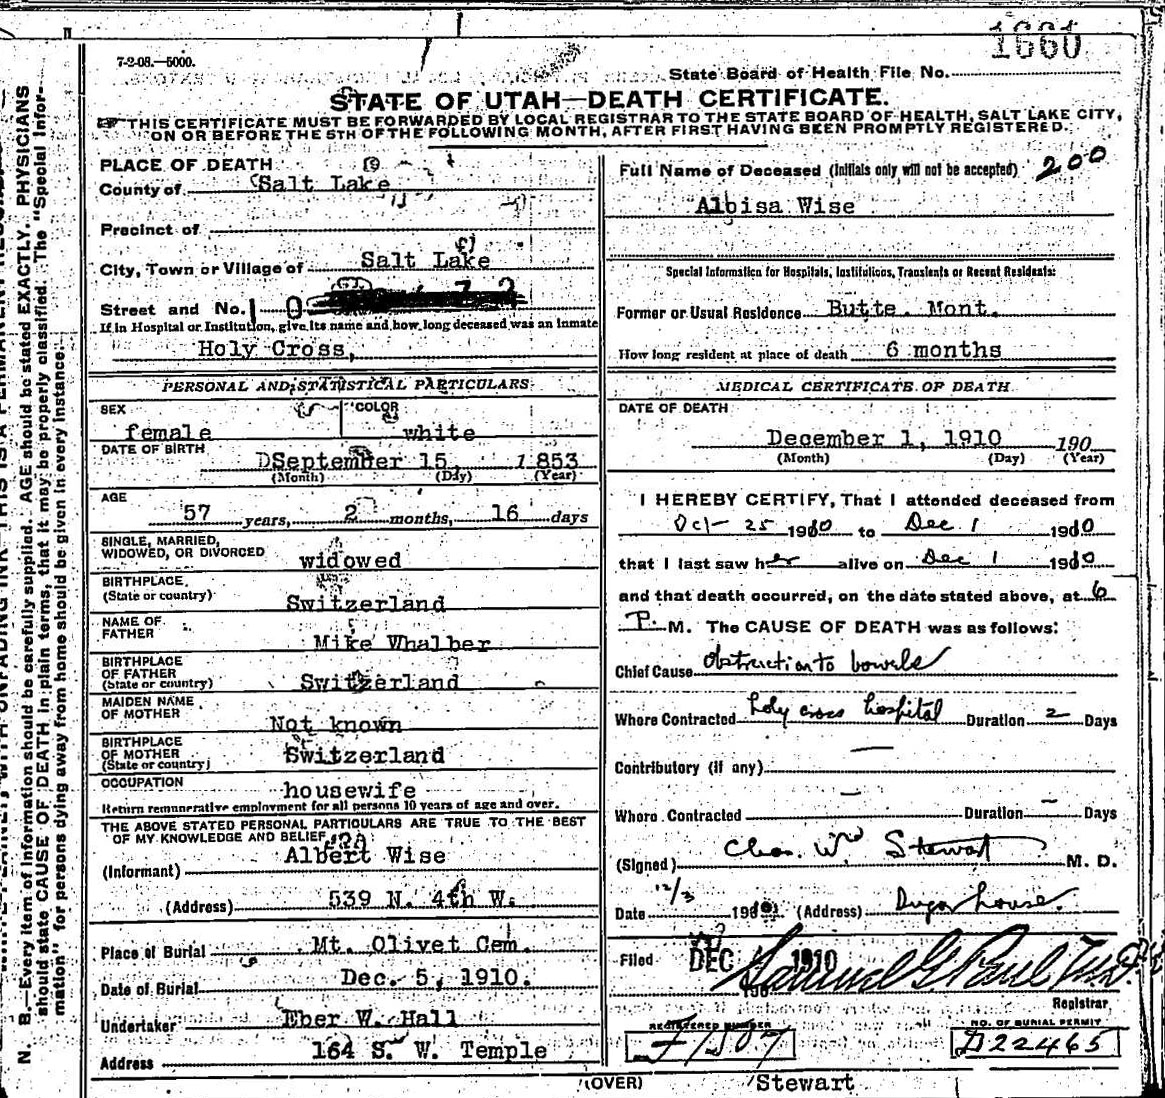 1660
7-2-08.—5000.
State Board of Health File No.
STATE OF UTAH—DEATH CERTIFICATE.
THIS CERTIFICATE MUST BE FORWARDED BY LOCAL REGISTRAR TO THE STATE BOARD OF HEALTH, SALT LAKE CITY,
ON OR BEFORE THE 5TH OF THE FOLLOWING MONTH, AFTER FIRST HAVING BEEN PROMPTLY REGISTERED.
PLACE OF DEATH
County of Salt Lake
Precinct of
City, Town or Village of Salt Lake
Street and No.
If in Hospital or Institution, give its name and how long deceased was an inmate
Holy Cross,
PERSONAL AND STATISTICAL PARTICULARS
SEX female COLOR white
DATE OF BIRTH September 15, 1853
(Month) (Day) (Year)
AGE
57 years, 2 months, 16 days
SINGLE, MARRIED,
WIDOWED, OR DIVORCED widowed
BIRTHPLACE
(State or country) Switzerland
NAME OF
FATHER Mike Whalber
BIRTHPLACE
OF FATHER
(State or country) Switzerland
MAIDEN NAME
OF MOTHER Not known
BIRTHPLACE
OF MOTHER
(State or country) Switzerland
OCCUPATION housewife
Return remunerative employment for all persons 10 years of age and over.
THE ABOVE STATED PERSONAL PARTICULARS ARE TRUE TO THE BEST
OF MY KNOWLEDGE AND BELIEF
(Informant) Albert Wise
(Address) 539 N. 4th W.
Place of Burial Mt. Olivet Cem.
Date of Burial Dec. 5, 1910.
Undertaker Eber W. Hall
Address 164 S. W. Temple
Full Name of Deceased (Initials only will not be accepted) 200
Aloisa Wise
Special Information for Hospitals, Institutions, Transients or Recent Residents:
Former or Usual Residence Butte. Mont.
How long resident at place of death 6 months
MEDICAL CERTIFICATE OF DEATH
DATE OF DEATH
December 1, 1910 190
(Month) (Day) (Year)
I HEREBY CERTIFY, That I attended deceased from
Oct 25 1910 to Dec 1 1910
that I last saw her alive on Dec 1 1910
and that death occurred, on the date stated above, at 6
P. M. The CAUSE OF DEATH was as follows:
Chief Cause Obstruction to bowels
Where Contracted Holy cross hospital Duration 2 Days
Contributory (if any)
Where Contracted Duration Days
(Signed) Chas. Wm Stewart M. D.
Date 12/3 1910 (Address) Sugar house.
Filed DEC 1910 Samuel G. Paul
Registrar
REGISTERED NUMBER
F1507
NO. OF BURIAL PERMIT
D22465
(OVER) Stewart
N. B.—Every item of information should be carefully supplied. AGE should be stated EXACTLY. PHYSICIANS
should state CAUSE OF DEATH in plain terms, that it may be properly classified. The "Special Infor-
mation" for persons dying away from home should be given in every instance.